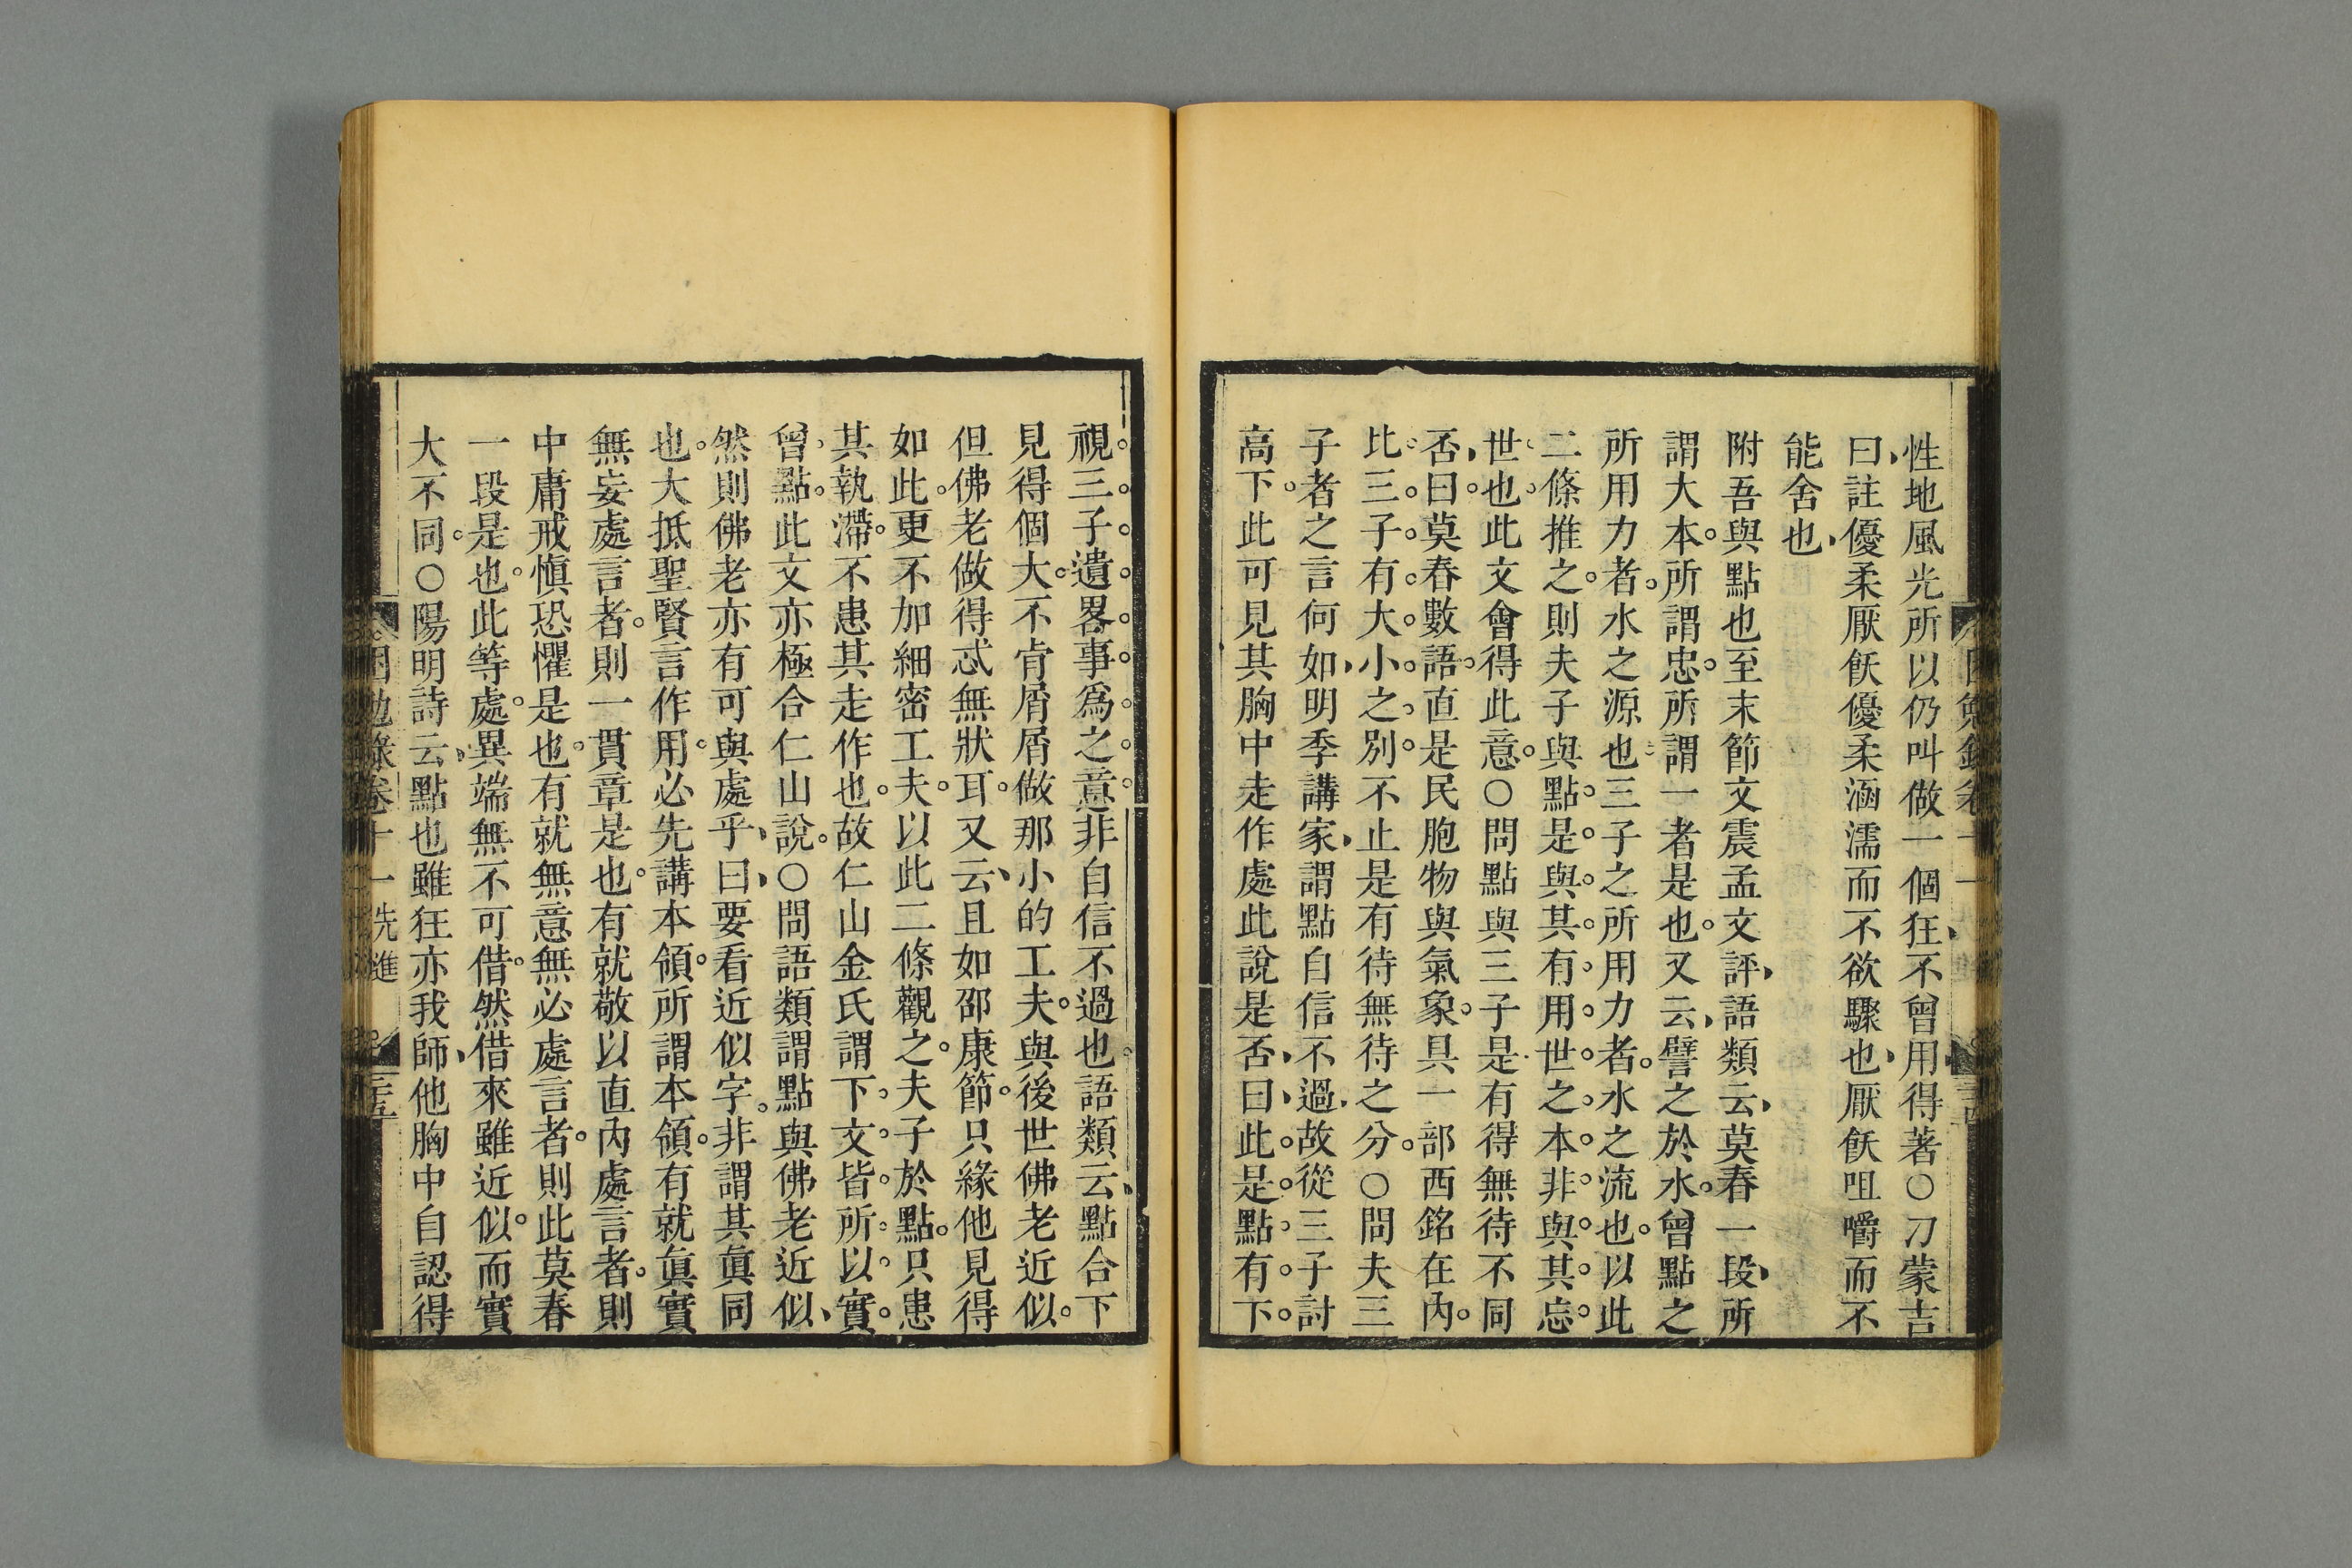 性地風光所以仍叫做一個狂不曾用得著○刁蒙吉
曰註優柔厭飫優柔涵濡而不欲驟也厭飫咀嚼而不
能舍也
附吾與點也至末節文震孟文評語類云莫春一段所
謂大本所謂忠所謂一者是也又云譬之於水曾點之
所用力者水之源也三子之所用力者水之流也以此
二條推之則夫子與點是與其有用世之本非與其忘
世也此文會得此意○問點與三子是有得無待不同
否曰莫春數語直是民胞物與氣象具一部西銘在內
比三子有大小之別不止是有待無待之分○問夫三
子者之言何如明季講家謂點自信不過故從三子討
高下此可見其胸中走作處此說是否曰此是點有下
視三子遺畧事爲之意非自信不過也語類云點合下
見得個大不肯屑屑做那小的工夫與後世佛老近似
但佛老做得忒無狀耳又云且如邵康節只緣他見得
如此更不加細密工夫以此二條觀之夫子於點只患
其執滯不患其走作也故仁山金氏謂下文皆所以實
曾點此文亦極合仁山說○問語類謂點與佛老近似
然則佛老亦有可與處乎曰要看近似字非謂其眞同
也大抵聖賢言作用必先講本領所謂本領有就眞實
無妄處言者則一貫章是也有就敬以直內處言者則
中庸戒愼恐懼是也有就無意無必處言者則此莫春
一段是也此等處異端無不可借然借來雖近似而實
大不同○陽明詩云點也雖狂亦我師他胸中自認得
困勉錄卷十一 先進